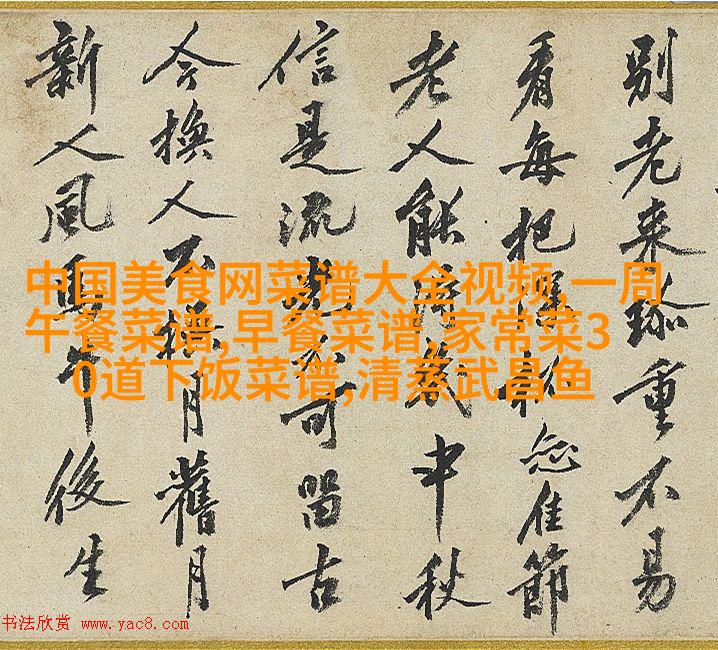 別老來珎重不易
看每把佳節
老人能幾中秋
信是流光不可留古
今換人不換月舊月
新人風年後生
中国美食网菜谱大全视频,一周
午餐菜谱,早餐菜谱,家常菜3
0道下饭菜谱,清蒸武昌鱼
书法欣赏 www.yac8.com